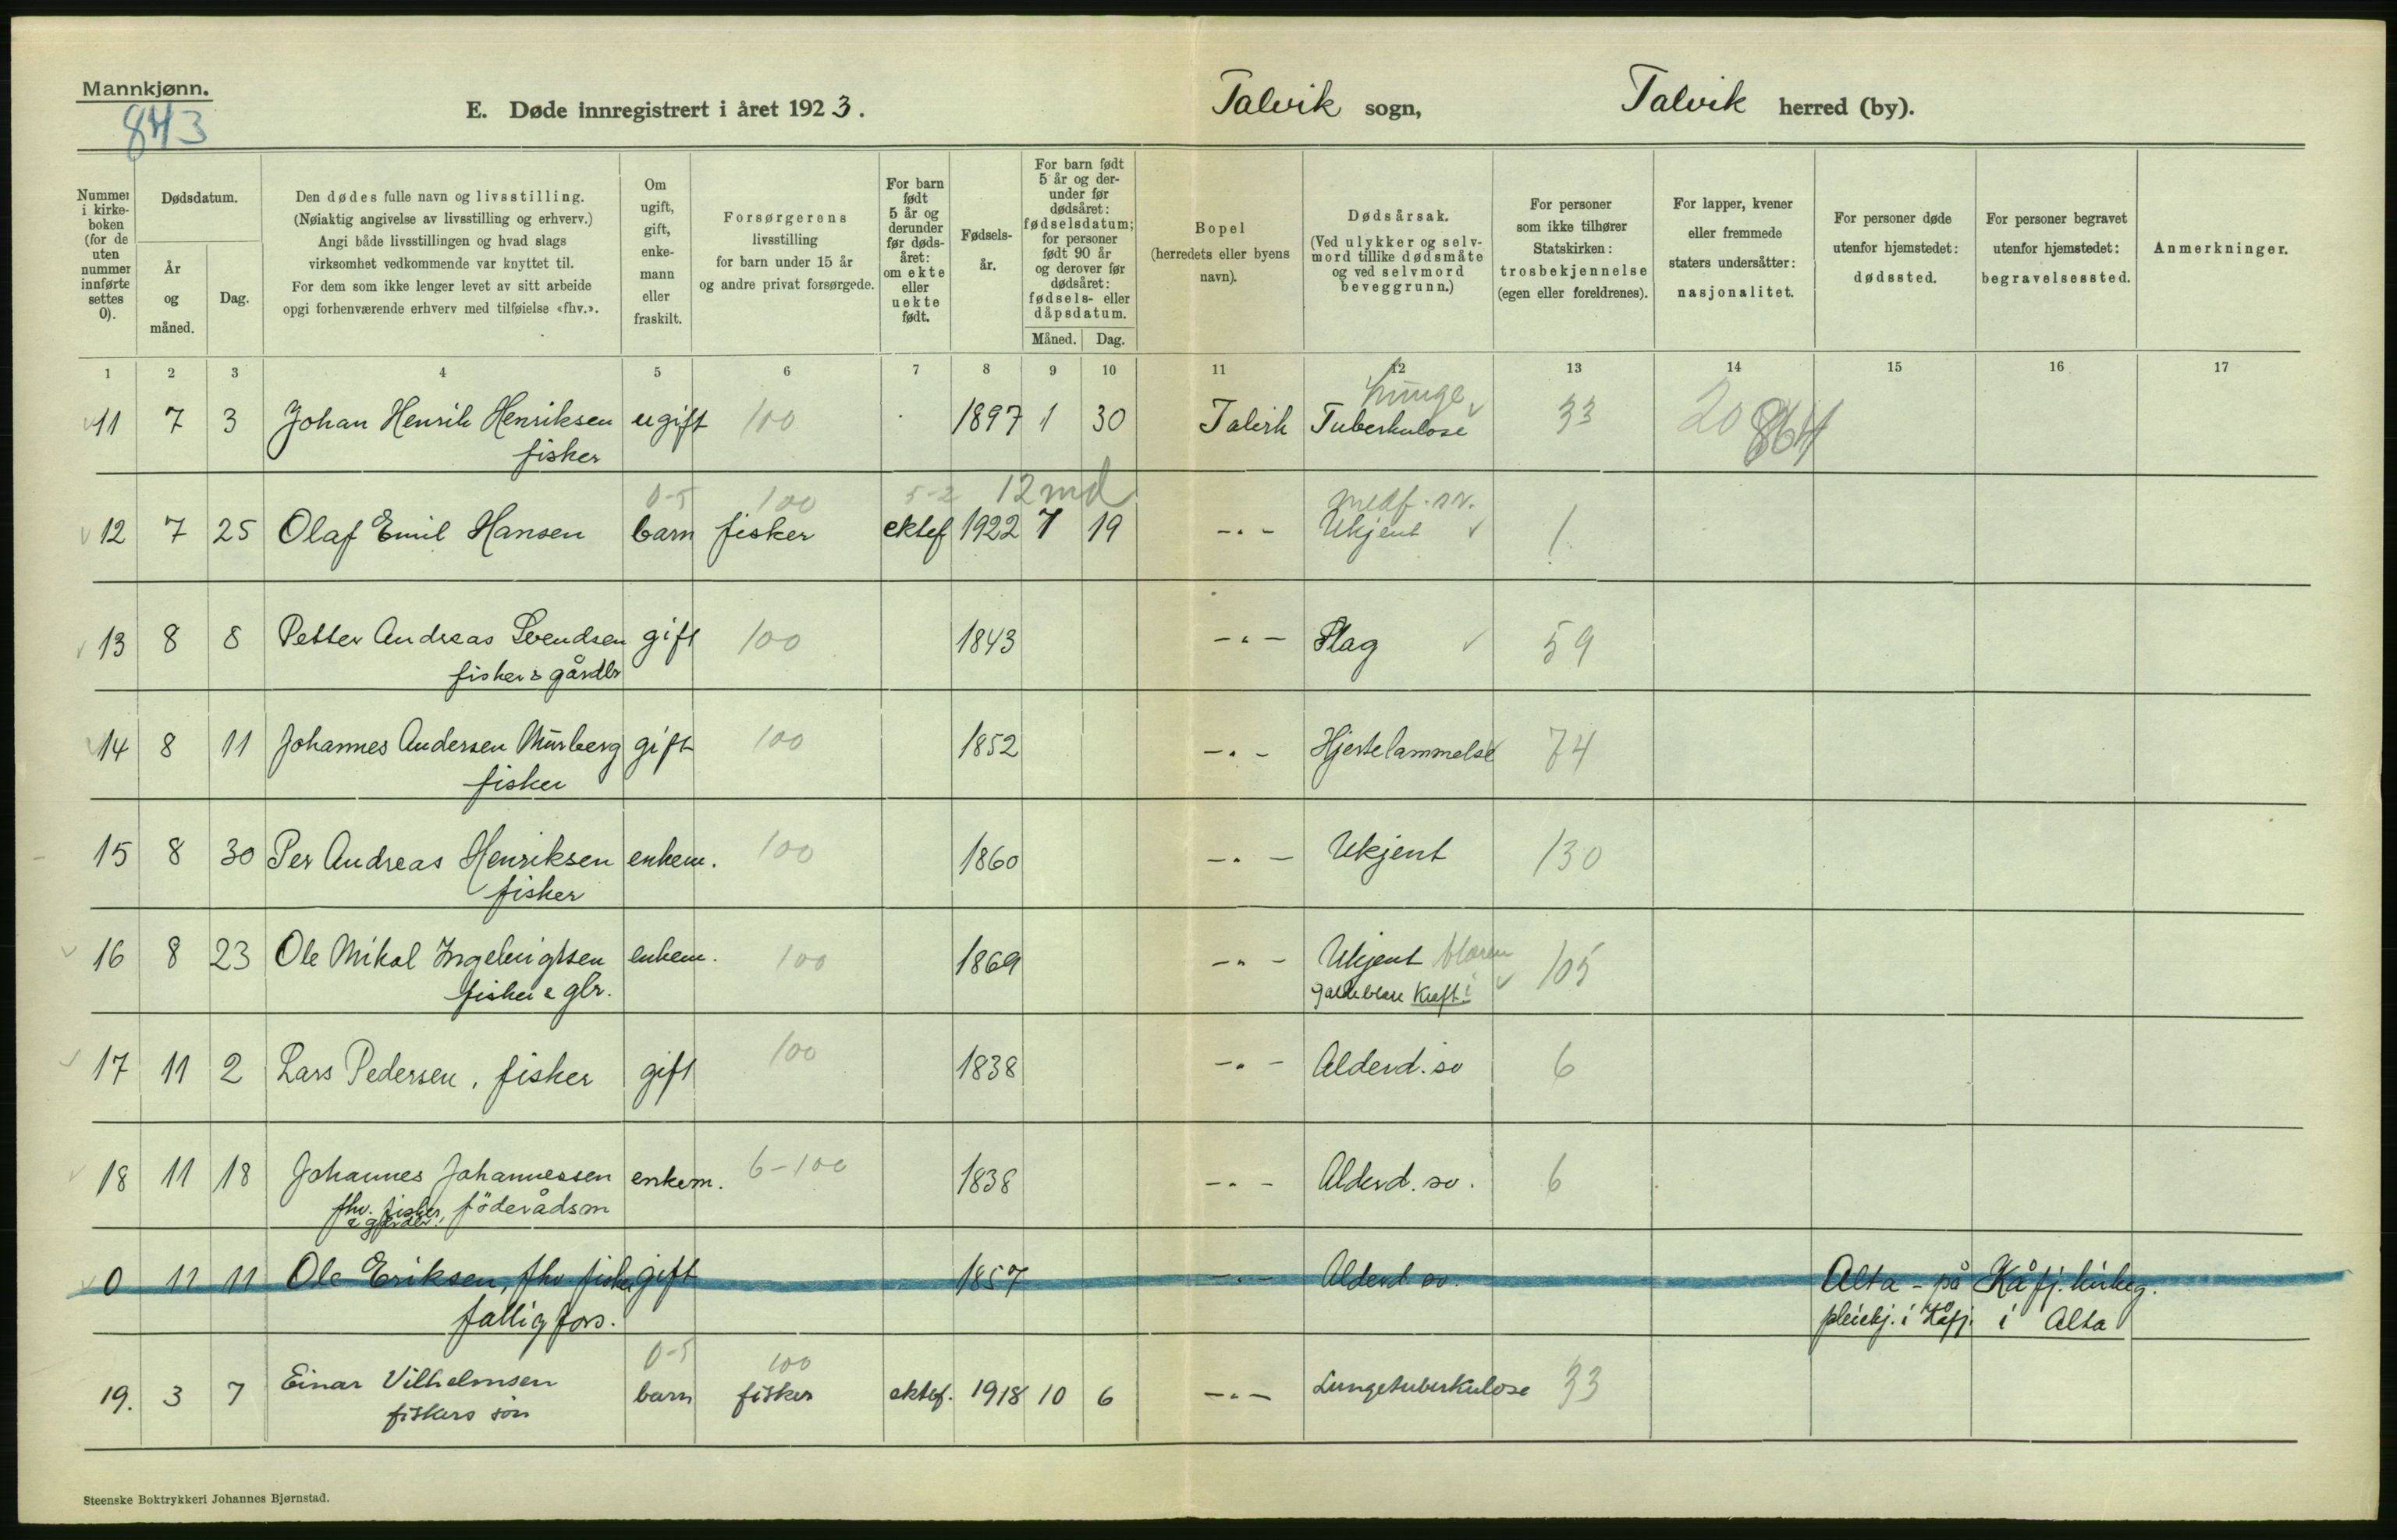 Mannkjønn.
843
E. Døde innregistrert i året 1923.
Talvik sogn,
Talvik herred (by).
Nummer i kirkeboken (for de uten nummer innførte settes 0).
Dødsdatum.
År og måned.
Dag.
Den dødes fulle navn og livsstilling.
(Nøiaktig angivelse av livsstilling og erhverv.)
Angi både livsstillingen og hvad slags
virksomhet vedkommende var knyttet til.
For dem som ikke lenger levet av sitt arbeide
opgi forhenværende erhverv med tilføielse «fhv.».
Om ugift, gift, enkemann eller fraskilt.
Forsørgerens
livsstilling
for barn under 15 år
og andre privat forsørgede.
For barn født 5 år og derunder før dødsåret: om ekte eller uekte født.
Fødselsår.
For barn født 5 år og derunder før dødsåret: fødselsdatum; for personer født 90 år og derover før dødsåret: fødsels- eller dåpsdatum.
Måned. Dag.
Bopel
(herredets eller byens
navn).
Dødsårsak.
(Ved ulykker og selv-
mord tillike dødsmåte
og ved selvmord
beveggrunn.)
For personer
som ikke tilhører
Statskirken:
trosbekjennelse
(egen eller foreldrenes).
For lapper, kvener
eller fremmede
staters undersåtter:
nasjonalitet.
For personer døde
utenfor hjemstedet:
dødssted.
For personer begravet
utenfor hjemstedet:
begravelsessted.
Anmerkninger.
1 2 3 4 5 6 7 8 9 10 11 12 13 14 15 16 17
Lunge
11 7 3 Johan Henrik Henriksen ugift 100 1897 1 30 Talvik Tuberkulose 33 20 864
fisker
0-5 100 5-2 12 md medf. sv.
12 7 25 Olaf Emil Hansen barn fisker ektef 1922 7 19 -"- Ukjent 1
13 8 8 Petter Andreas Svendsen gift 100 1843 -"- Slag 59
fisker & gårdbr
14 8 11 Johannes Andersen Murberg gift 100 1852 -"- Hjertelammelse 74
fisker
15 8 30 Per Andreas Henriksen enkem. 100 1860 -"- Ukjent 130
fisker
16 8 23 Ole Mikal Ingebrigtsen enkem. 100 1869 -"- Ukjent 105
fisker & gbr. galleblære Kræft i
17 11 2 Lars Pedersen, fisker gift 100 1838 -"- Alderd. sv 6
18 11 18 Johannes Johannessen enkem. 6-100 1838 -"- Alderd. sv. 6
fhv. fisker föderådsm
& gårdbr.
0 11 11 Ole Eriksen, fhv fisker gift 1857 -"- Alderd. sv. Alta - på Kåfj. kirkeg.
fattigfors. pleiehj. i Kåfj. i Alta
0-5 100
19. 3 7 Einar Vilhelmsen barn fisker ektef. 1918 10 6 -"- Lungetuberkulose 33
fiskers søn
Steenske Boktrykkeri Johannes Bjørnstad.